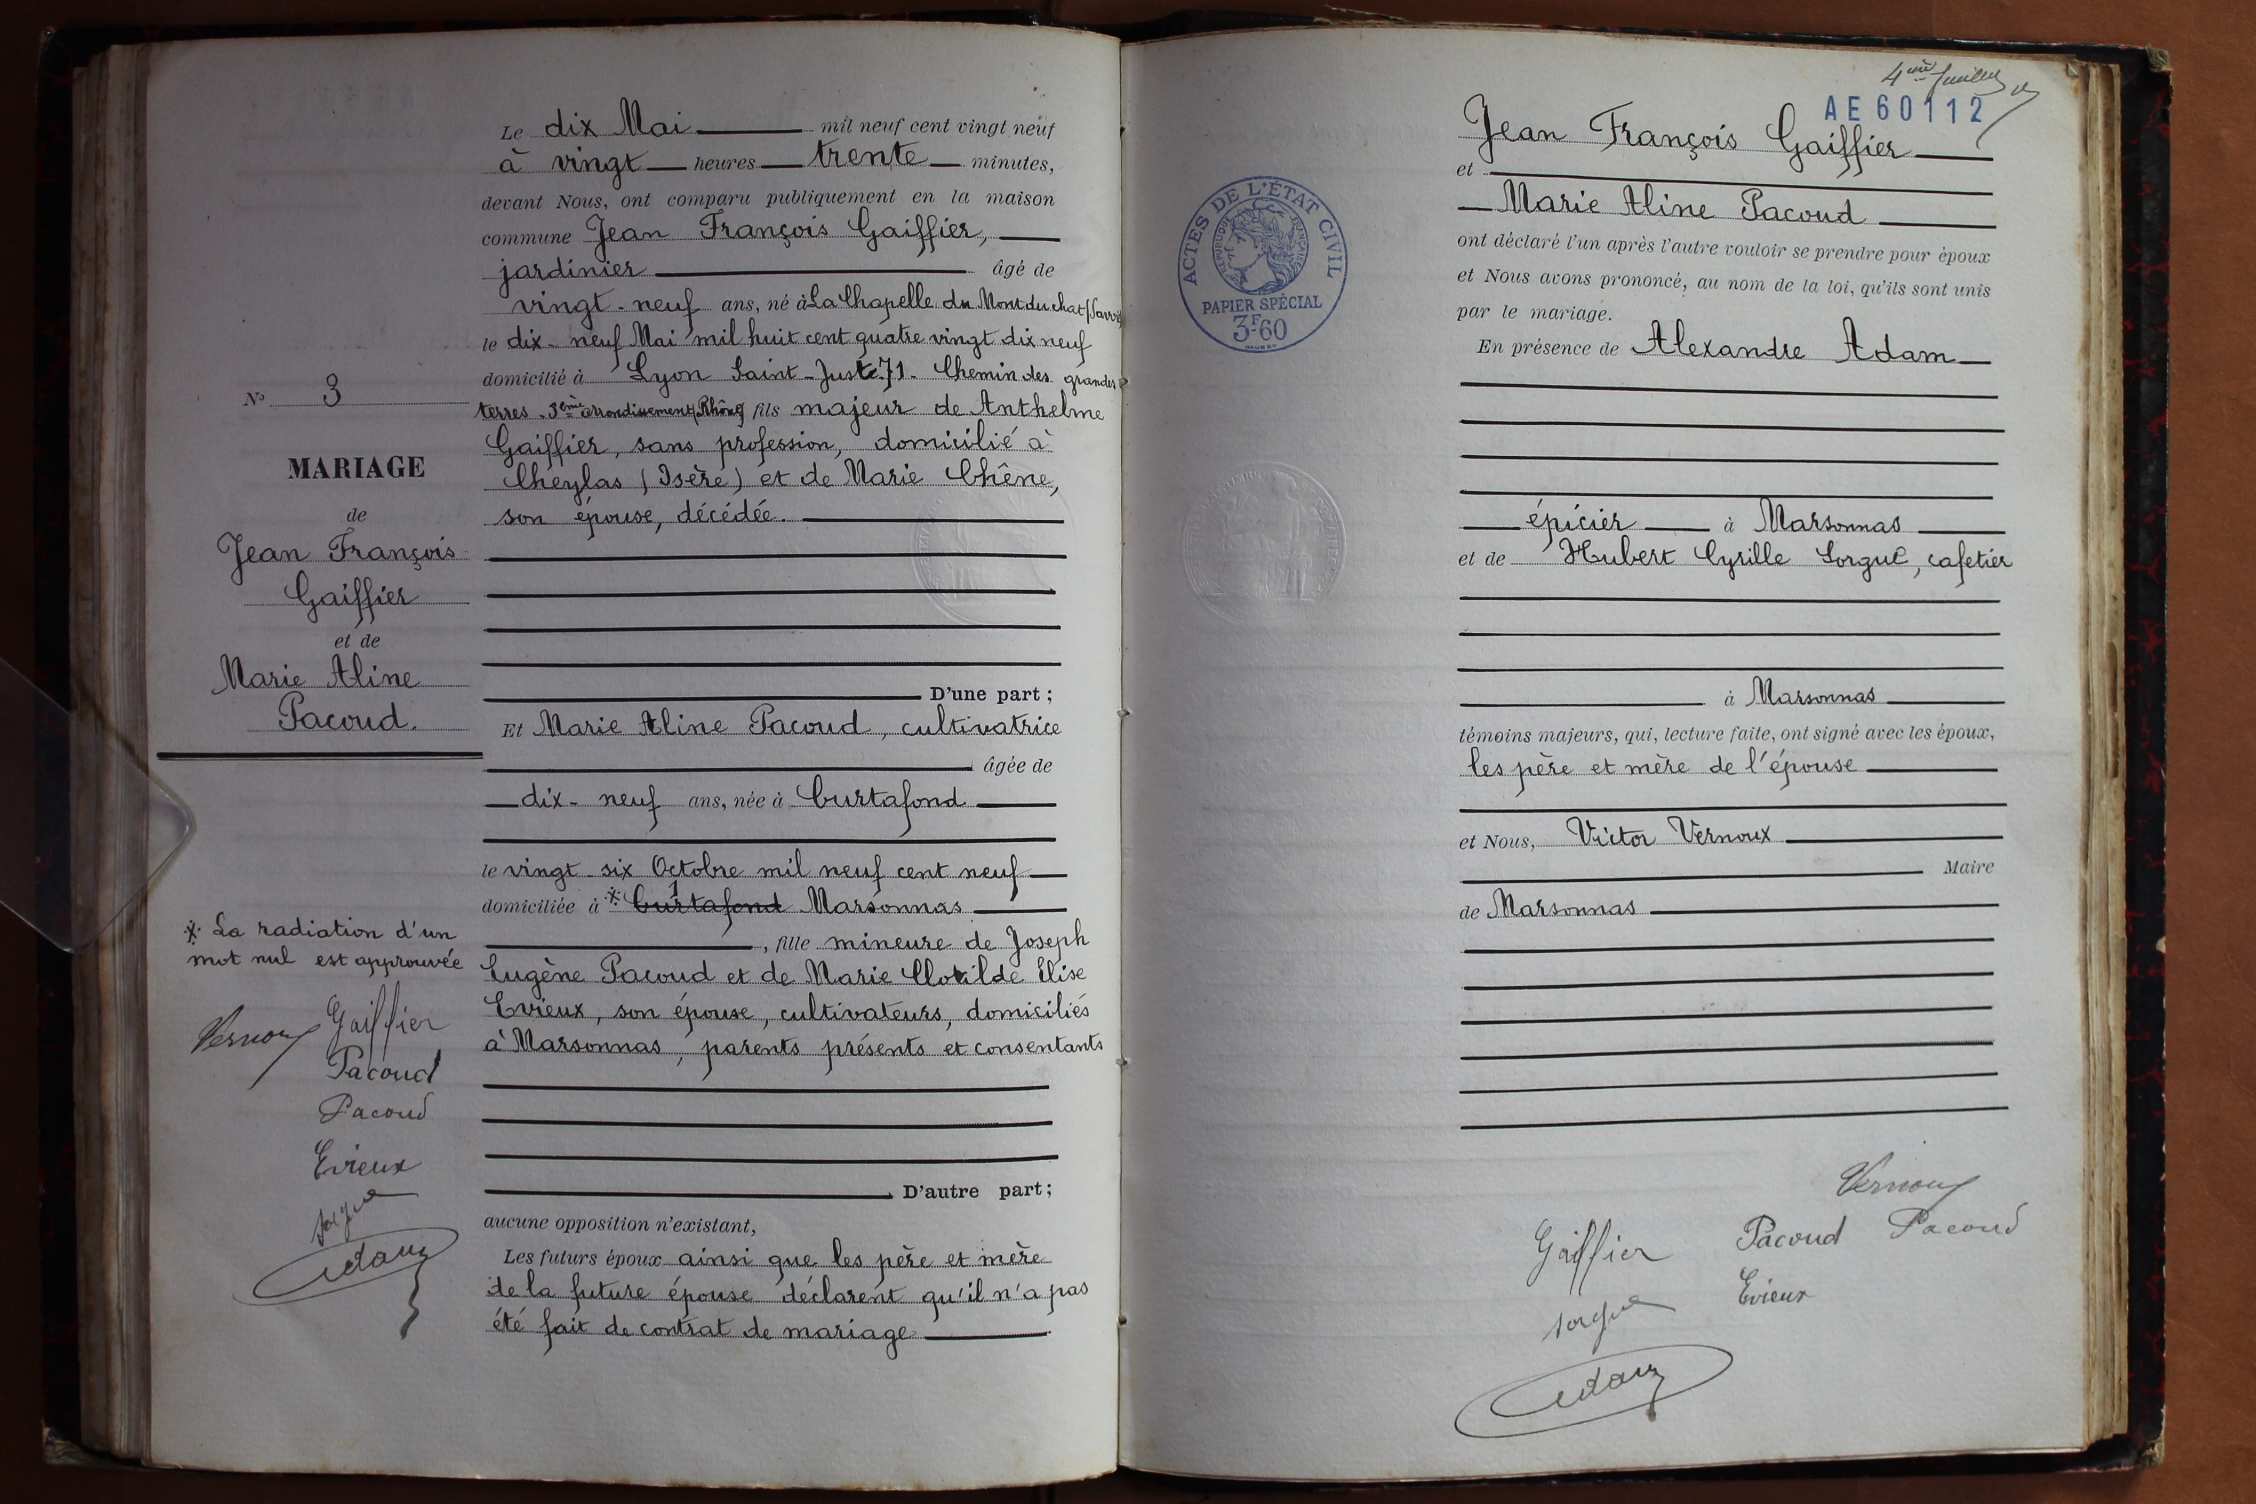 Le dix Mai mil neuf cent vingt neuf
à vingt heures trente minutes,
devant Nous, ont comparu publiquement en la maison
commune Jean François Gaiffier,
jardinier âgé de
vingt-neuf ans, né à La Chapelle du Mont du chat (Savoie
le dix-neuf Mai mil huit cent quatre vingt dix neuf
domicilié à Lyon Saint-Just 71 - Chemin des grandes
terres - 3ème arrondissement (Rhône) fils majeur de Anthelme
Gaiffier, sans profession, domicilié à
Cheylas (Isère) et de Marie Chêne,
son épouse, décédée.
D'une part ;
Et Marie Aline Pacoud, cultivatrice
âgée de
dix-neuf ans, née à Curtafond
le vingt six Octobre mil neuf cent neuf
domiciliée à * Curtafond Marsonnas
, fille mineure de Joseph
Eugène Pacoud et de Marie Clotilde Elise
Evieux, son épouse, cultivateurs, domiciliés
à Marsonnas, parents présents et consentants
D'autre part ;
aucune opposition n'existant,
Les futurs époux ainsi que les père et mère
de la future épouse déclarent qu'il n'a pas
été fait de contrat de mariage
No 3
MARIAGE
de
Jean François
Gaiffier
et de
Marie Aline
Pacoud.
* La radiation d'un
mot nul est approuvée
Vernoux Gaiffier
Pacoud
Pacoud
Evieux
Sorgue
Adam
4ème feuillet
AE 60112
ACTES DE L'ÉTAT CIVIL
RÉPUBLIQUE FRANÇAISE
PAPIER SPÉCIAL
3F60
Jean François Gaiffier
et
Marie Aline Pacoud
ont déclaré l'un après l'autre vouloir se prendre pour époux
et Nous avons prononcé, au nom de la loi, qu'ils sont unis
par le mariage.
En présence de Alexandre Adam
épicier à Marsonnas
et de Hubert Cyrille Sorgue, cafetier
à Marsonnas
témoins majeurs, qui, lecture faite, ont signé avec les époux,
les père et mère de l'épouse
et Nous, Victor Vernoux
Maire
de Marsonnas
Vernoux
Gaiffier Pacoud Pacoud
Sorgue Evieux
Adam